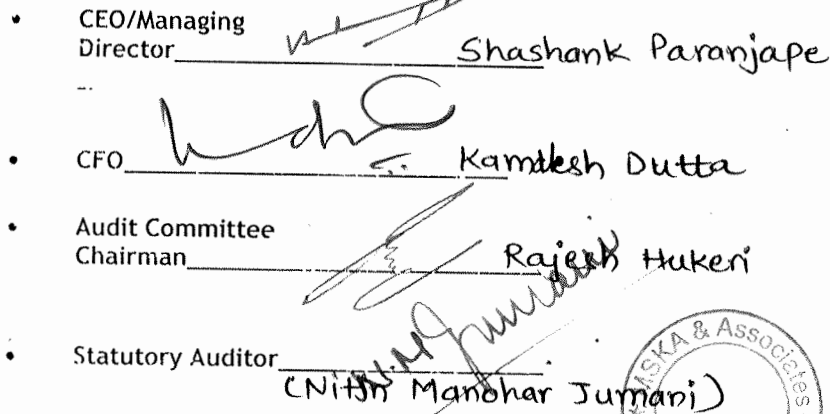 • CEO/Managing
Director Shashank Paranjape
• CFO Kamlesh Dutta
• Audit Committee
Chairman Rajesh Hukeri
• Statutory Auditor
(Nitin Manohar Jumani)
MSKA & Associates